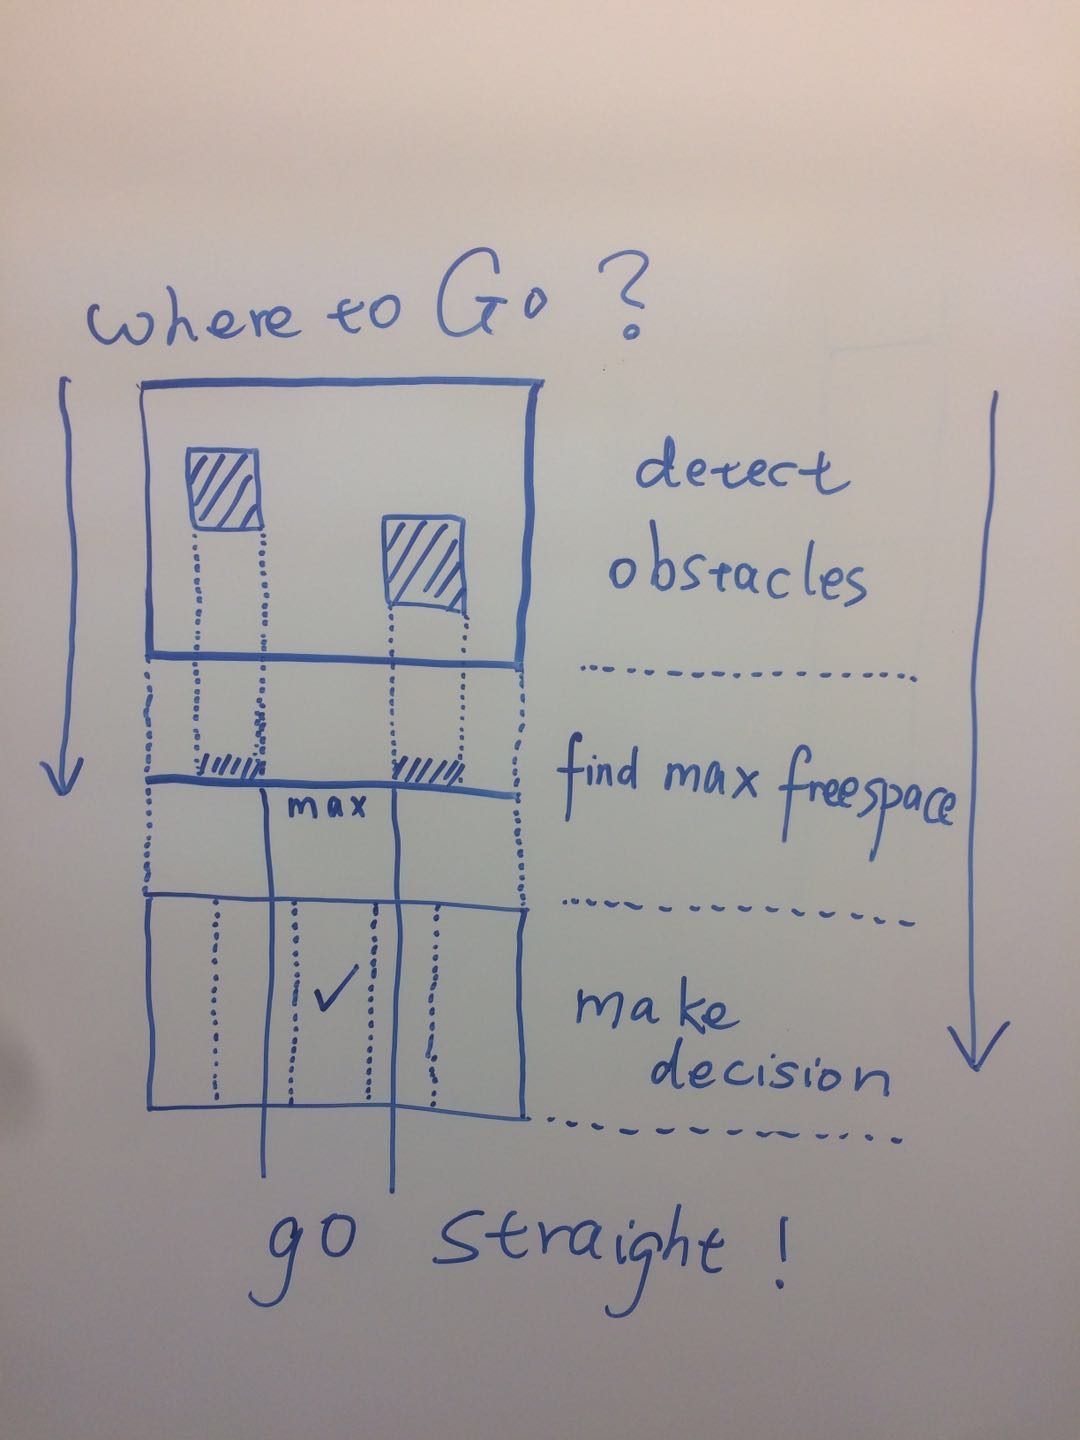 where to Go ?
detect
obstacles
find max freespace
max
make
decision
go straight !